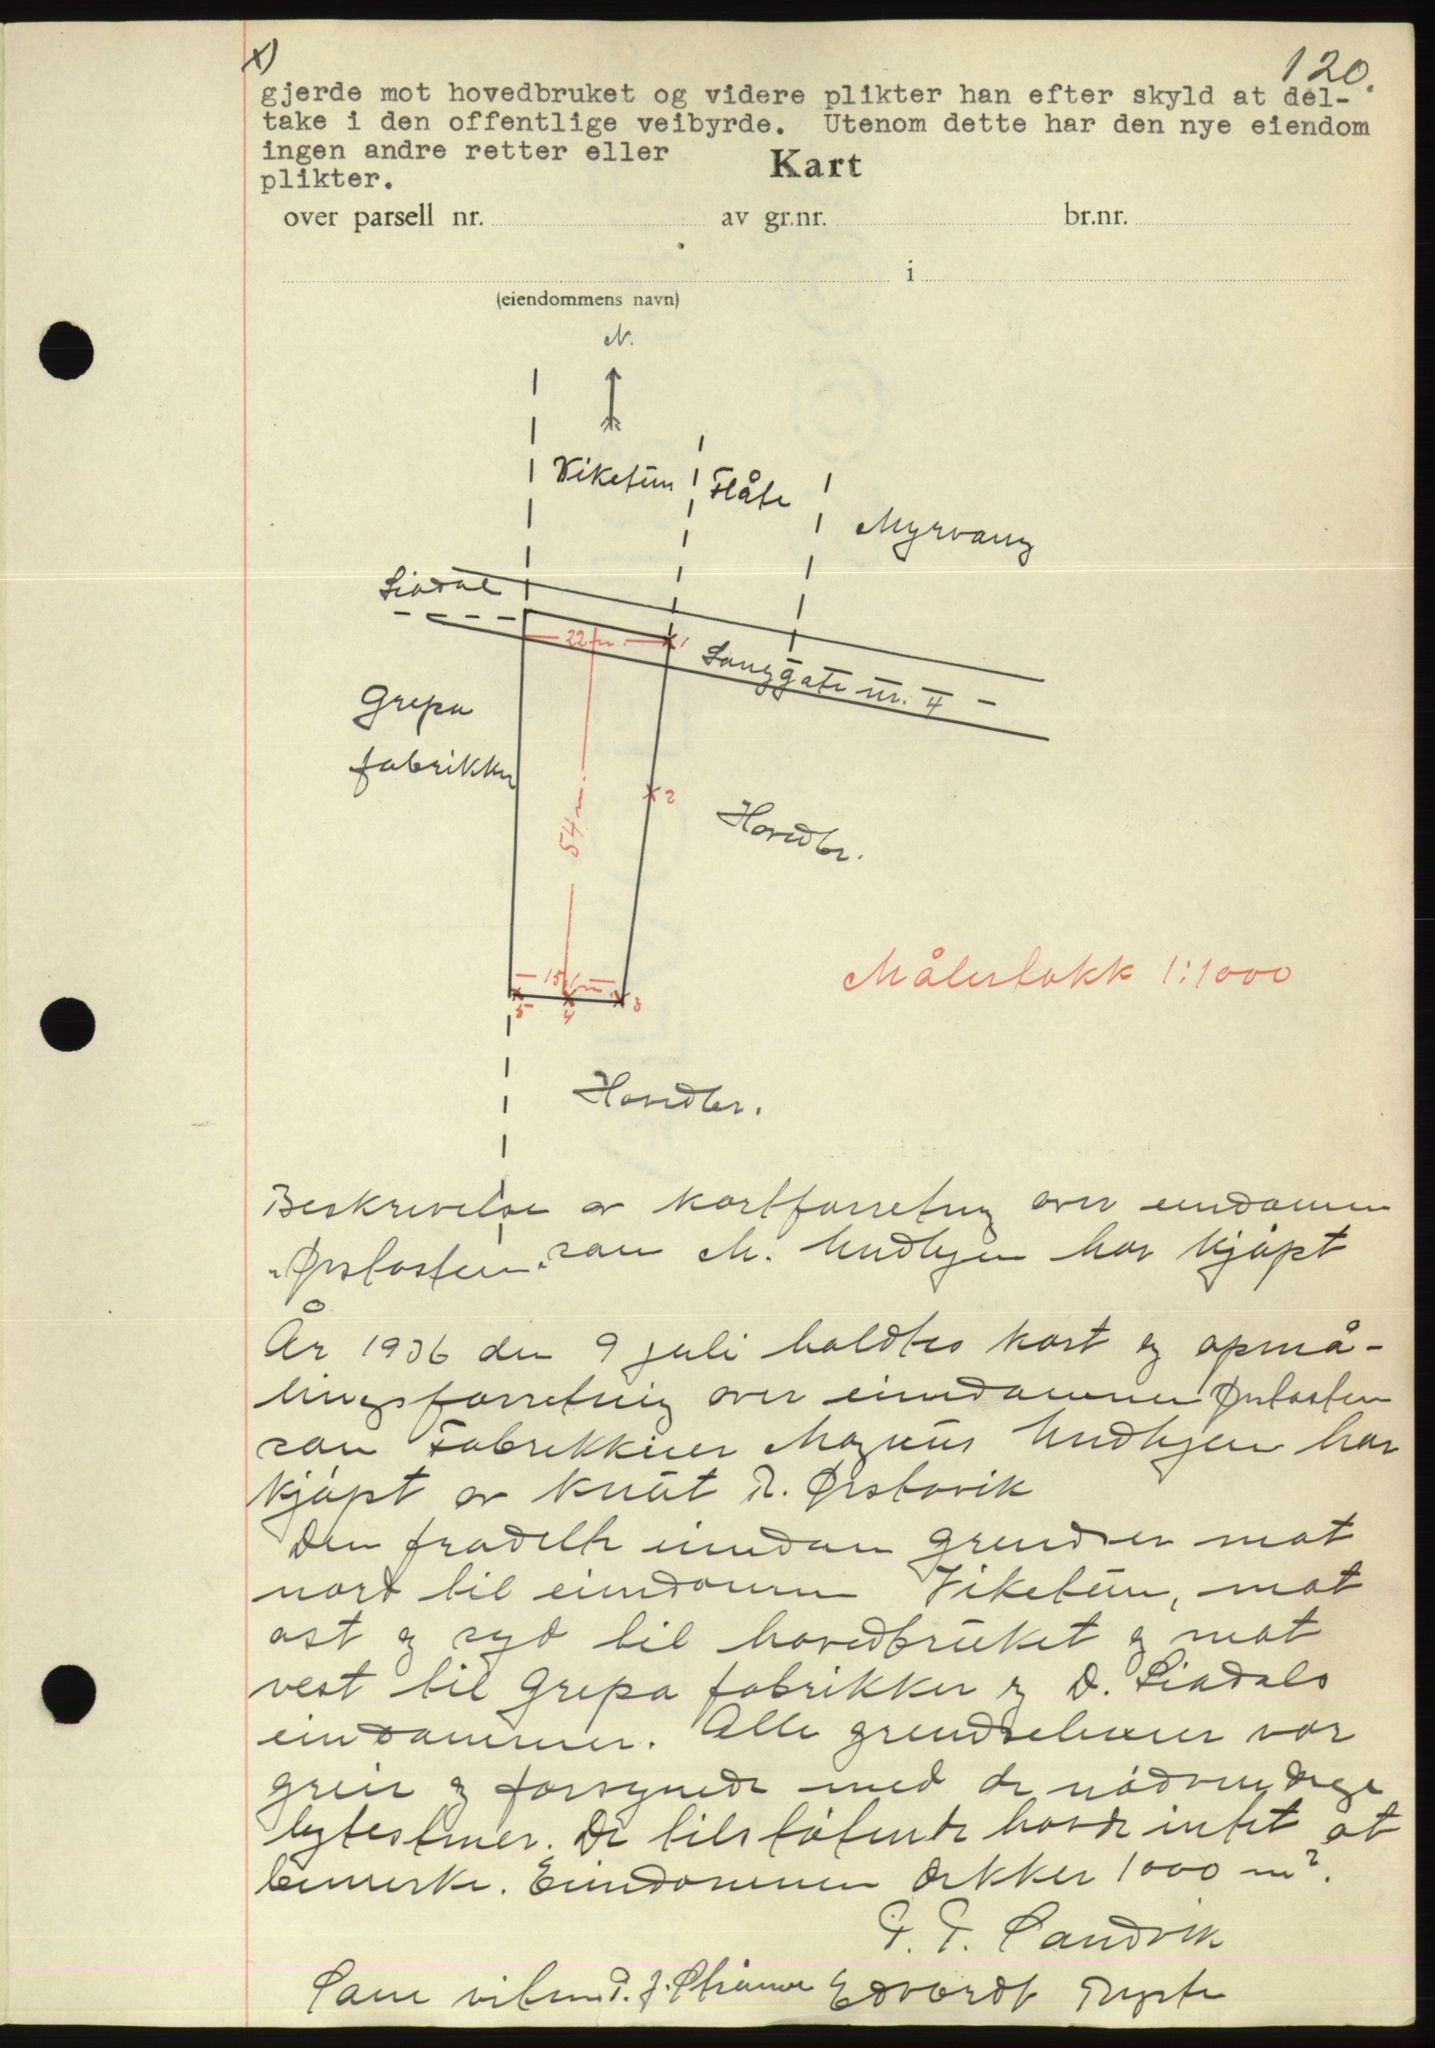 x)
120.
gjerde mot hovedbruket og videre plikter han efter skyld at del-
take i den offentlige veibyrde. Utenom dette har den nye eiendom
ingen andre retter eller
plikter.
Kart
over parsell nr. av gr.nr. br.nr.
i
(eiendommens navn)
N.
Viketun Flåte
Myrvang
Liadal
22 m. 1
Langgate nr. 4
Grepa
fabrikker
2
54 m.
Hovedbr.
Målestokk 1:1000
15 m.
5 4 3
Hovedbr.
Beskrivelse av kartforretning over eiendommen
"Ørstasten" som M. har kjøpt
År 1936 den 9 juli holdtes kart og opmå-
lingsforretning over eiendommen Ørstasten
som Fabrikkeier Magnus har
kjøpt av Knut R. Ørstavik
Den fradelte eiendom grendser mot
nord til eiendommen Viketun, mot
ost og syd til hovedbruket og mot
vest til Grepa fabrikker og D. Liadals
eiendommer. Alle grendselinier var
greie og forsynede med de nødvendige
bytestener. De tilstøtende havde intet at
bemerke. Eiendommen dekker 1000 m².
Sandvik
Som vitne P. J. Edvardt Myste